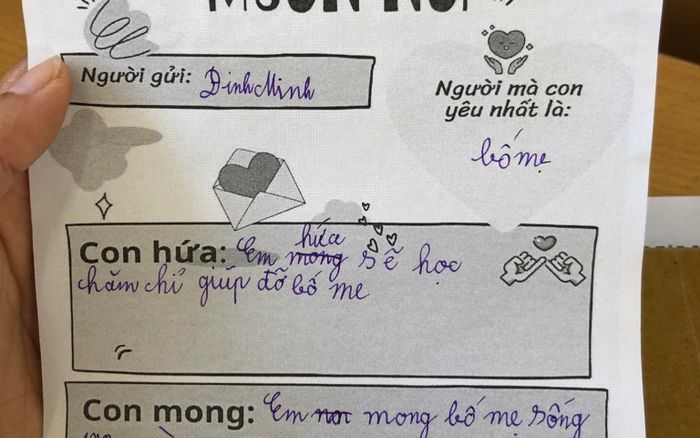 MUỐN NÓI
Người gửi: Đinh Minh
Người mà con
yêu nhất là:
bố mẹ
hứa
Con hứa: Em mong sẽ học
chăm chỉ giúp đỡ bố mẹ
Con mong: Em mong bố me sống